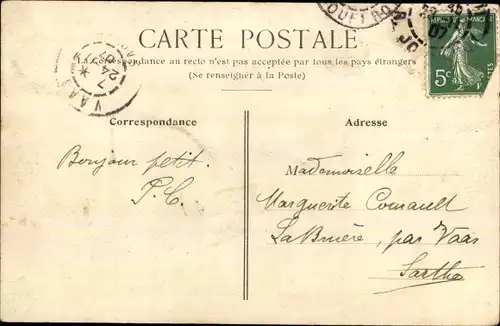 CARTE POSTALE
La Correspondance au recto n'est pas acceptée par tous les pays étrangers
(Se renseigner à la Poste)
Correspondance
Adresse
Bonjour petit.
P.C.
Mademoiselle
Marguerite
La Bruère, par Vaas
Sarthe
5c
VAAS
7
24
07